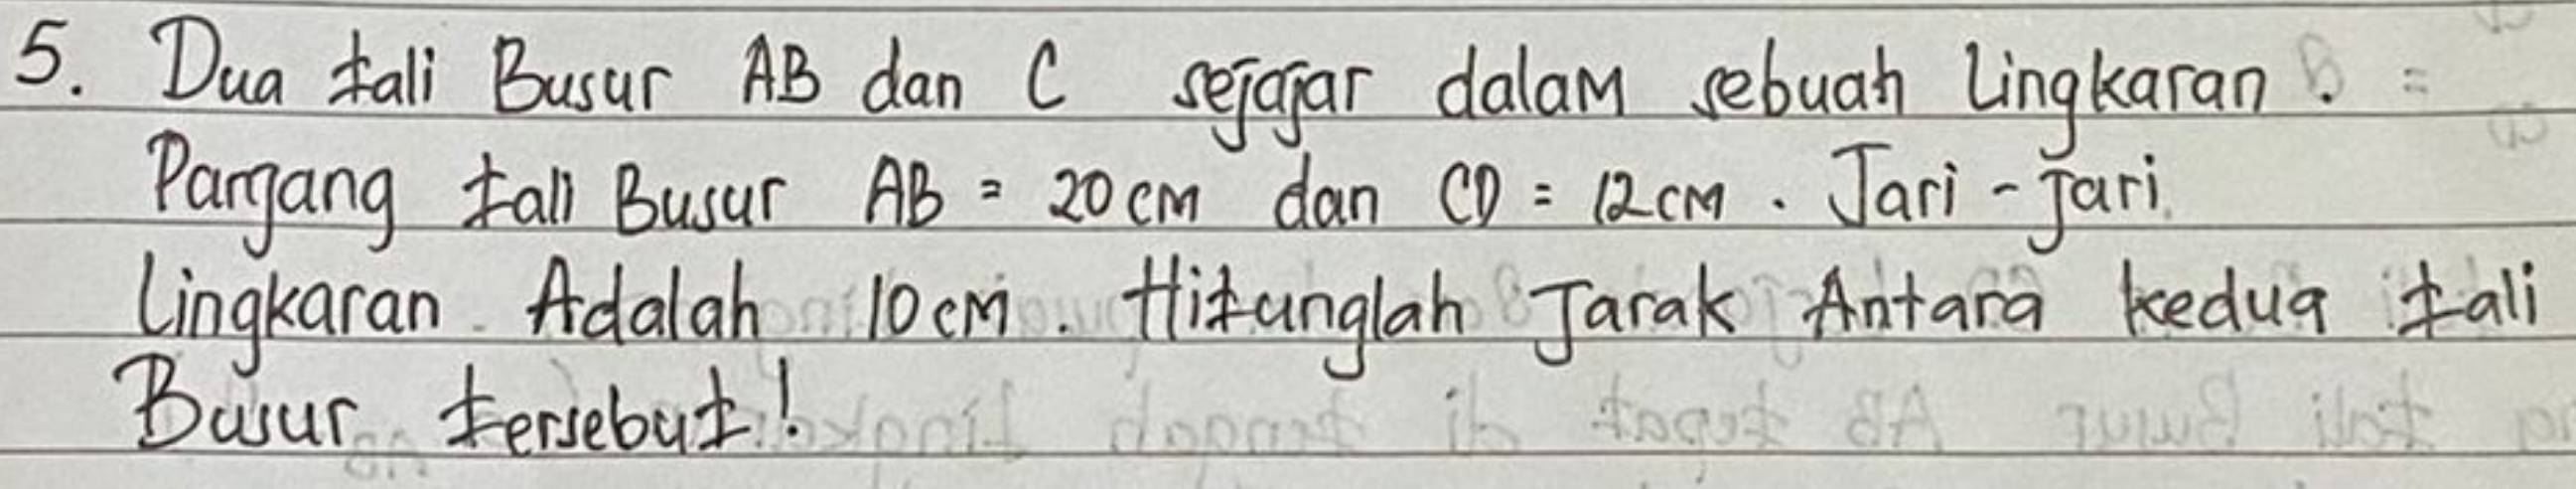 5. Dua tali Busur AB dan C sejajar dalam sebuah Lingkaran.
Panjang tali Busur AB = 20 cm dan CD = 12 cm. Jari-jari
Lingkaran Adalah 10 cm. Hitunglah Jarak Antara kedua tali
Busur tersebut!